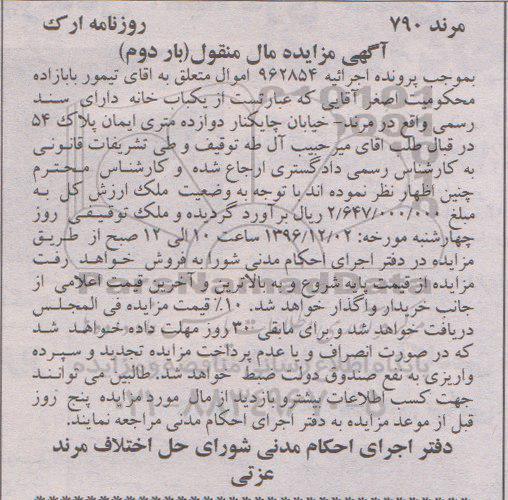 مرند ۷۹۰ روزنامه ارک
آگهی مزایده مال منقول(بار دوم)
بموجب پرونده اجرائیه ۹۶۲۸۵۴ اموال متعلق به آقای تیمور بابازاده
محکومیت اصغر آقایی که عبارتست از یکباب خانه دارای سند
رسمی واقع در مرند- خیابان چایکنار دوازده متری ایمان پلاک ۵۴
در قبال طلب آقای میر حبیب آل طه توقیف و طی تشریفات قانونی
به کارشناس رسمی دادگستری ارجاع شده و کارشناس محترم
چنین اظهار نظر نموده اند با توجه به وضعیت ملک ارزش کل به
مبلغ ۲/۶۴۷/۰۰۰/۰۰۰ ریال برآورد گردیده و ملک توقیفی روز
چهارشنبه مورخه: ۱۳۹۶/۱۲/۰۲ ساعت ۱۰ الی ۱۲ صبح از طریق
مزایده در دفتر اجرای احکام مدنی شورا به فروش خواهد رفت
مزایده از قیمت پایه شروع و به بالاترین و آخرین قیمت اعلامی از
جانب خریدار واگذار خواهد شد. ۱۰٪ قیمت مزایده فی المجلس
دریافت خواهد شد و برای مابقی ۳۰ روز مهلت داده خواهد شد
که در صورت انصراف و یا عدم پرداخت مزایده تجدید و سپرده
واریزی به نفع صندوق دولت ضبط خواهد شد. طالبین می توانند
جهت کسب اطلاعات بیشتر و بازدید از مال مورد مزایده پنج روز
قبل از موعد مزایده به دفتر اجرای احکام مدنی مراجعه نمایند.
دفتر اجرای احکام مدنی شورای حل اختلاف مرند
عزتی
ParsNamadData
۰۲۱-۸۸۳۴۹۶۷۰